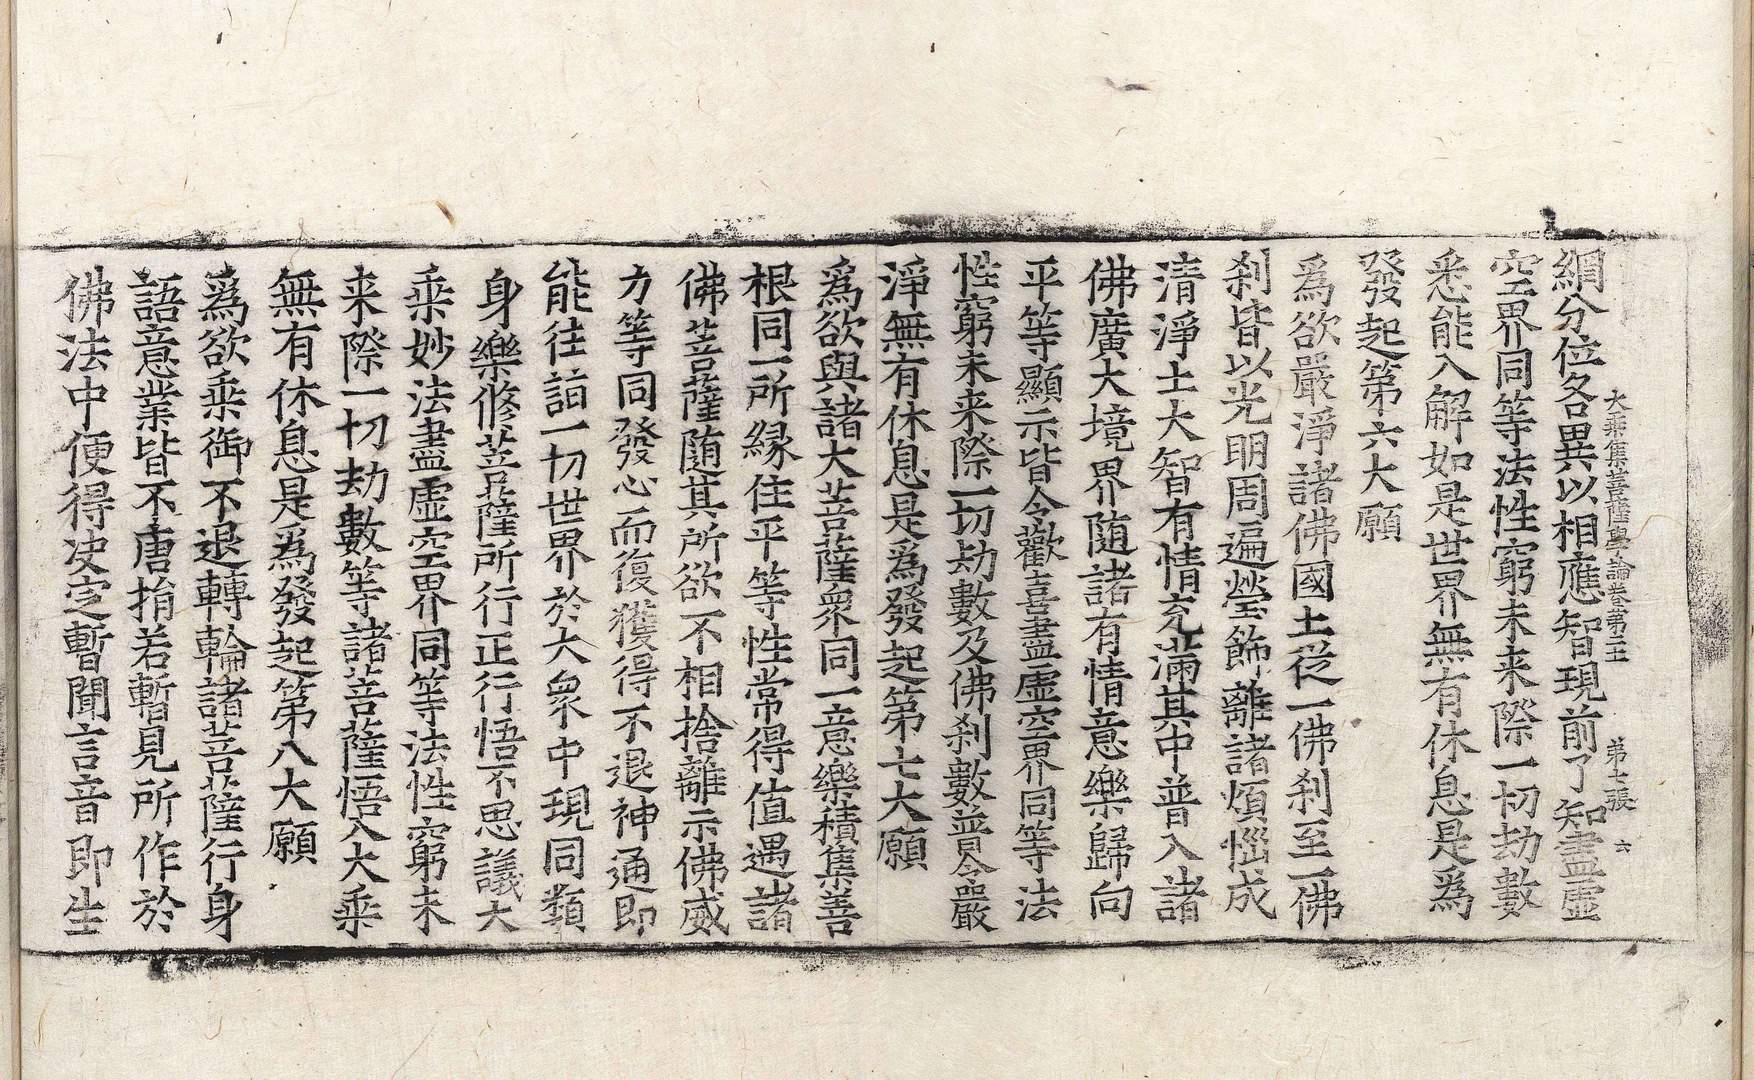 大乘集菩薩學論卷第二十 第七張 六
網分位各異以相應智現前了知盡虛
空界同等法性窮未来際一切劫數
悉能入解如是世界無有休息是爲
發起第六大願
爲欲嚴淨諸佛國土從一佛刹至一佛
刹皆以光明周遍瑩飾離諸煩惱成
清淨土大智有情充滿其中普入諸
佛廣大境界随諸有情意樂歸向
平等顯示皆令歡喜盡虛空界同等法
性窮未来際一切劫數及佛刹數普令嚴
淨無有休息是爲發起第七大願
爲欲與諸大菩薩衆同一意樂積集善
根同一所縁住平等性常得值遇諸
佛菩薩随其所欲不相捨離示佛威
力等同發心而復獲得不退神通即
能往詣一切世界於大衆中現同類
身樂修菩薩所行正行悟不思議大
乘妙法盡虛空界同等法性窮未
来際一切劫數等諸菩薩悟入大乘
無有休息是爲發起第八大願
爲欲乘御不退轉輪諸菩薩行身
語意業皆不唐捐若暫見所作於
佛法中便得决定暫聞言音即生